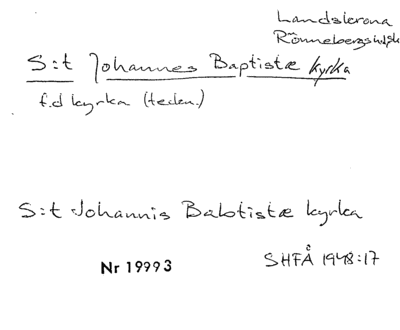 Landskrona
Rönnebergs hd, Sk
S:t Johannes Baptistæ kyrka
f.d kyrka (tecken.)
S:t Johannis Babtistæ kyrka
Nr 19993
SHFÅ 1948:17